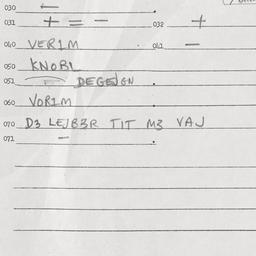 030 ←
031 + = - 032 +
040 VERIM 041 -
050 KNOBL
051 DEGEJGN
060 VORIM
070 D3 LEJB3R TIT M3 VAJ
071 -